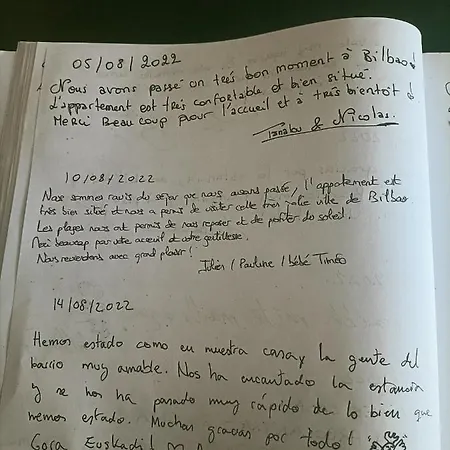 05/08/2022
Nous avons passé un très bon moment à Bilbao!
L'appartement est très confortable et bien situé.
Merci Beaucoup pour l'accueil et à très bientôt!
& Nicolas.
10/08/2022
Nous sommes ravis du séjour que nous avons passée, l'appartement est
très bien situé et nous a permis de visiter cette très jolie ville de Bilbao
Les plages nous ont permis de nous reposer et de profiter du soleil.
Merci beaucoup par votre acceuil et votre gentillesse.
Nous reviendrons avec grand plaisir!
Julien / Pauline / bébé Timéo
14/08/2022
Hemos estado como en nuestra casa y la gente del
barrio muy amable. Nos ha encantado la estancia
y se nos ha pasado muy rápido de lo bien que
hemos estado. Muchas gracias por todo!
Gora Euskadi!